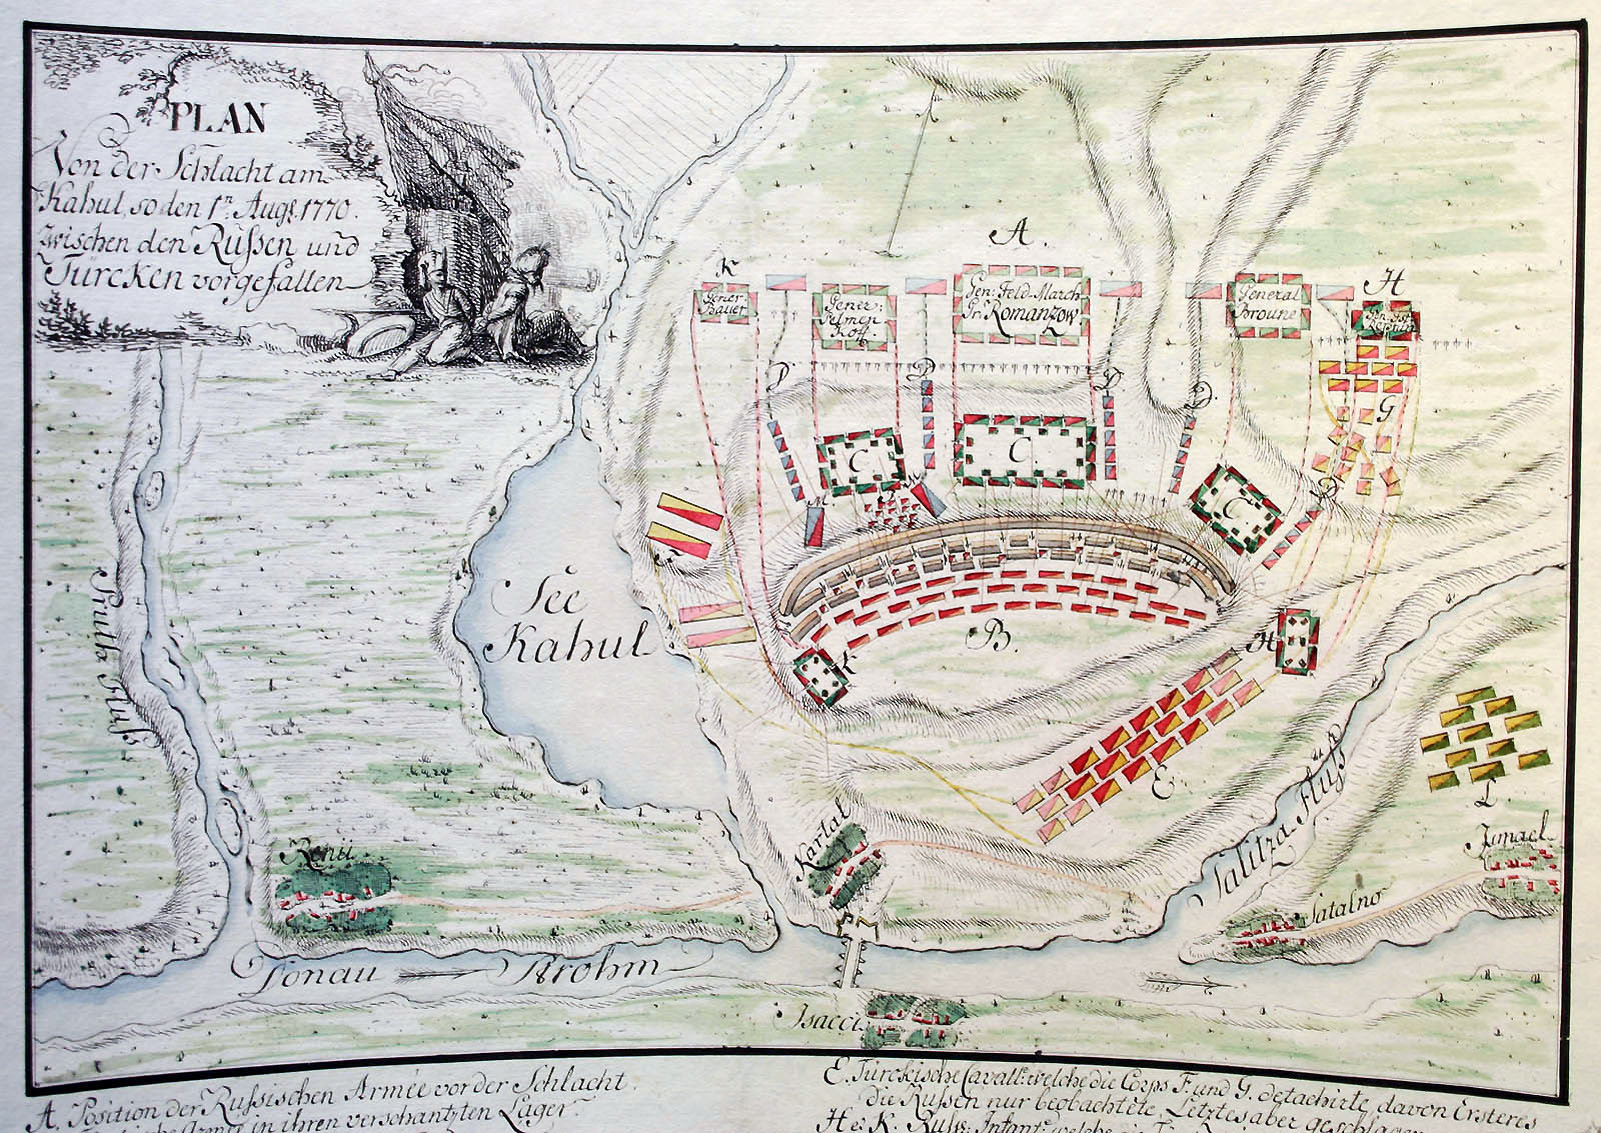 PLAN
Von der Schlacht am
Kahul, so den 1.n Augt. 1770.
zwischen den Rußen und
Türcken vorgefallen
A.
K
H
Gener:
Bauer
Gener:
Gen: Feld-March
Gr: Romanzow
General
Broune
D
D
D
D
G
C
C
C
D
See
Kahul
B.
K
H
E.
L.
Pruth Fluß
Renii
Kartal
Salitza Fluß
Ismael
Satalno
Donau Strohm
Isacci
A. Position der Rußischen Armée vor der Schlacht.
in ihren verschantzten Lager
E. Türckische Cavall: welche die Corps F. und G. detachirte, davon Ersteres
die Rußen nur beobachtete, Letztes aber geschlagen
H et K. Ruß: Infant: welche